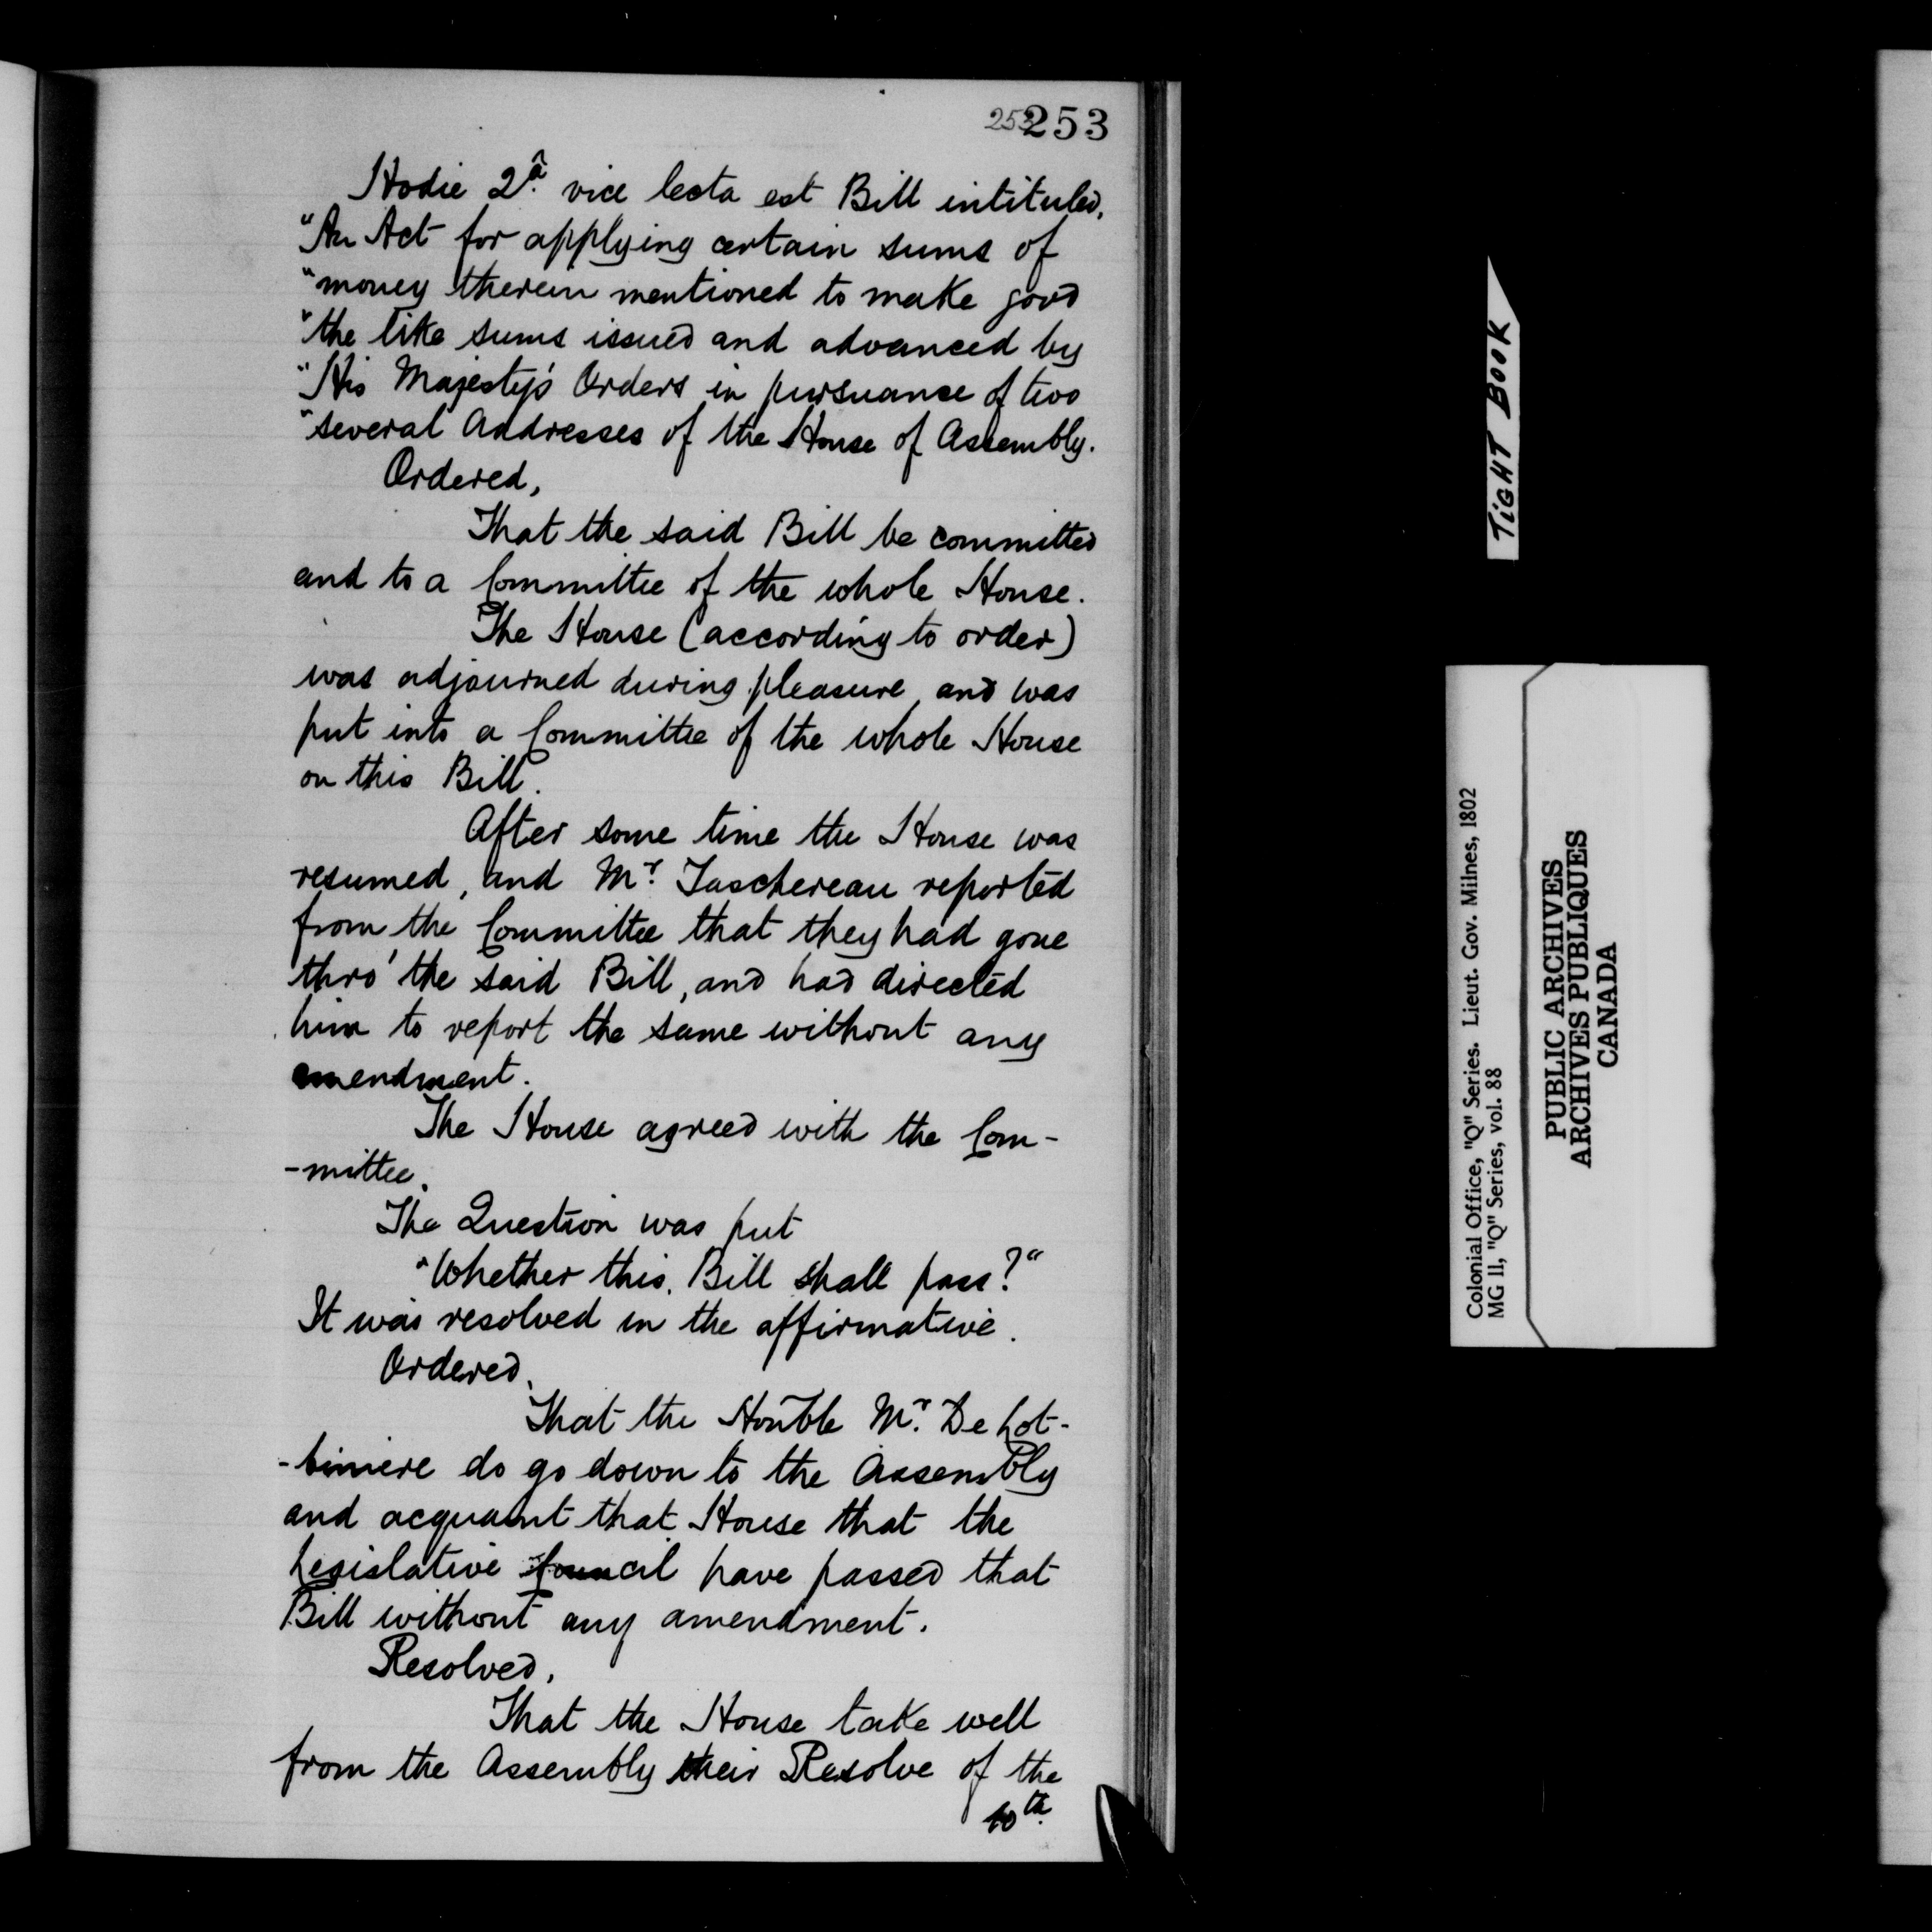 253 253
Hodie 2â. vice lecta est Bill intituled,
"An Act for applying certain sums of
"money therein mentioned to make good
"the like sums issued and advanced by
"His Majesty's Orders in pursuance of two
"several Addresses of the House of Assembly.
Ordered,
That the said Bill be committed
and to a Committee of the whole House.
The House (according to order)
was adjourned during pleasure, and was
put into a Committee of the whole House
on this Bill.
After some time the House was
resumed, and Mr. Taschereau reported
from the Committee that they had gone
thro' the said Bill, and had directed
him to report the same without any
amendment.
The House agreed with the Com-
-mittee.
The Question was put
"Whether this Bill shall pass?"
It was resolved in the affirmative.
Ordered,
That the Honble Mr. De Lot-
-binière do go down to the Assembly
and acquaint that House that the
Legislative Council have passed that
Bill without any amendment.
Resolved,
That the House take well
from the Assembly their Resolve of the
10th.
TIGHT BOOK
Colonial Office, "Q" Series. Lieut. Gov. Milnes, 1802
MG 11, "Q" Series, vol. 88
PUBLIC ARCHIVES
ARCHIVES PUBLIQUES
CANADA